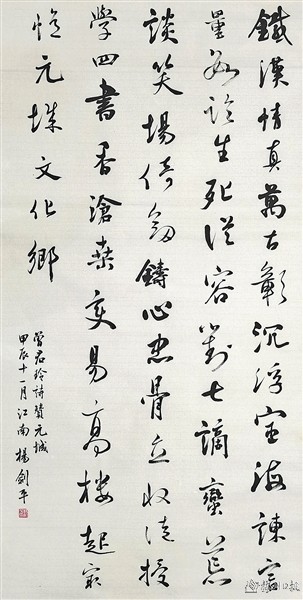 鐵漢情真萬古彰沉浮宦海諫官
量敢論生死從容對七謫蠻荒
談笑場鑄心忠骨立收徒授
學四書香滄桑变易高樓起最
憶元城文化鄉
曾君玲詩贊元城
甲辰十一月江南楊劍平